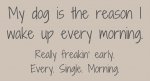 My dog is the reason I
wake up every morning.
Really freakin' early.
Every. Single. Morning.